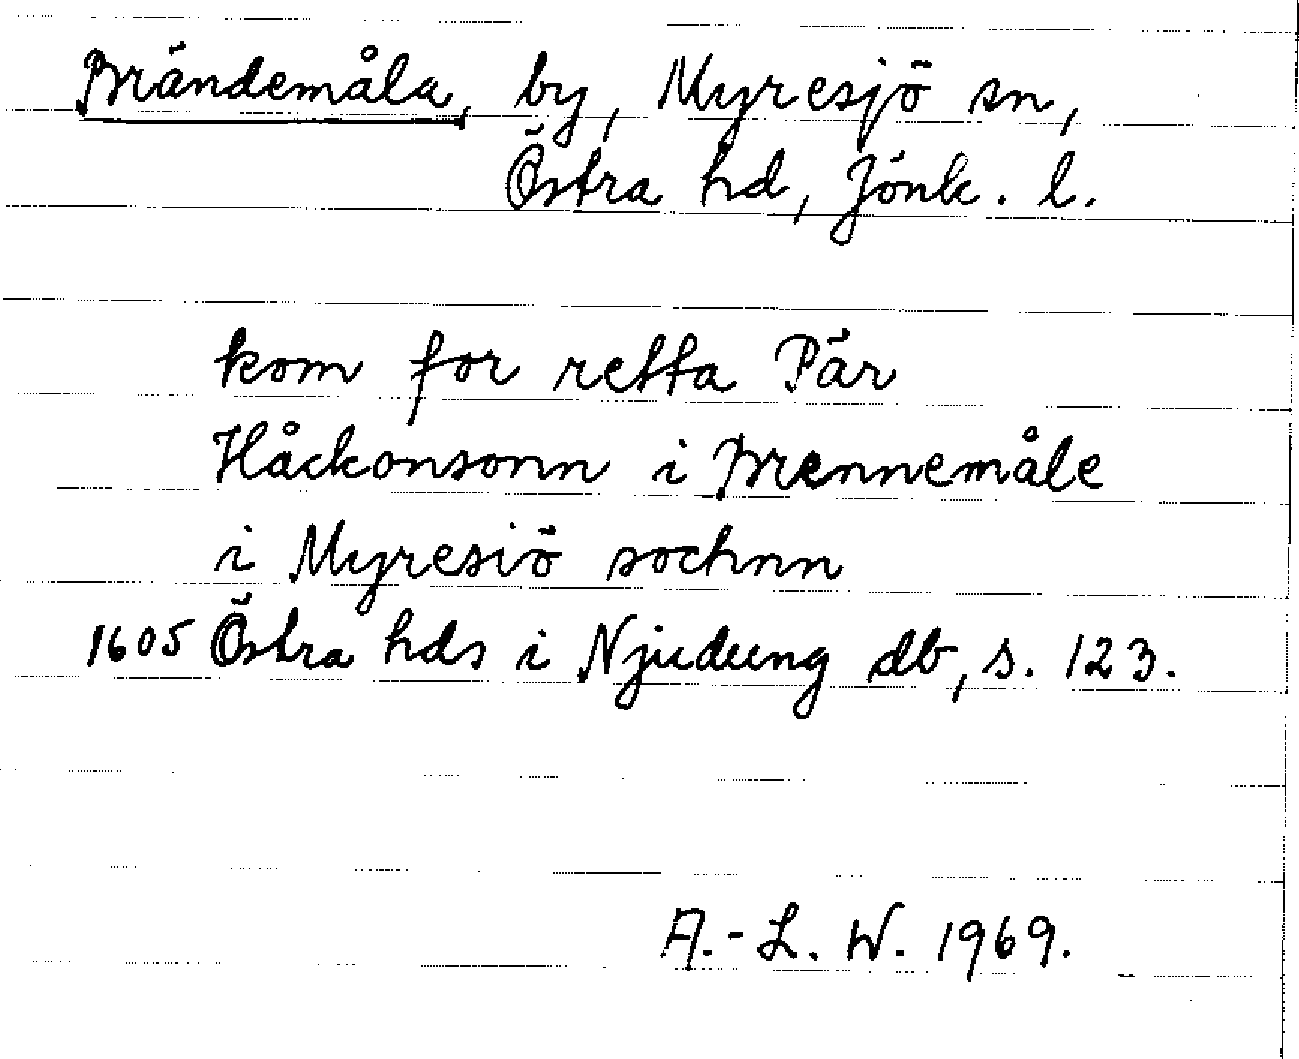 Brändemåla, by, Myresjö sn,
Östra hd, Jönk. l.
kom for retta Pär
Håckonsonn i Brennemåle
i Myresiö sochnn
1605 Östra hds i Njudung db, s. 123.
A.-L. W. 1969.